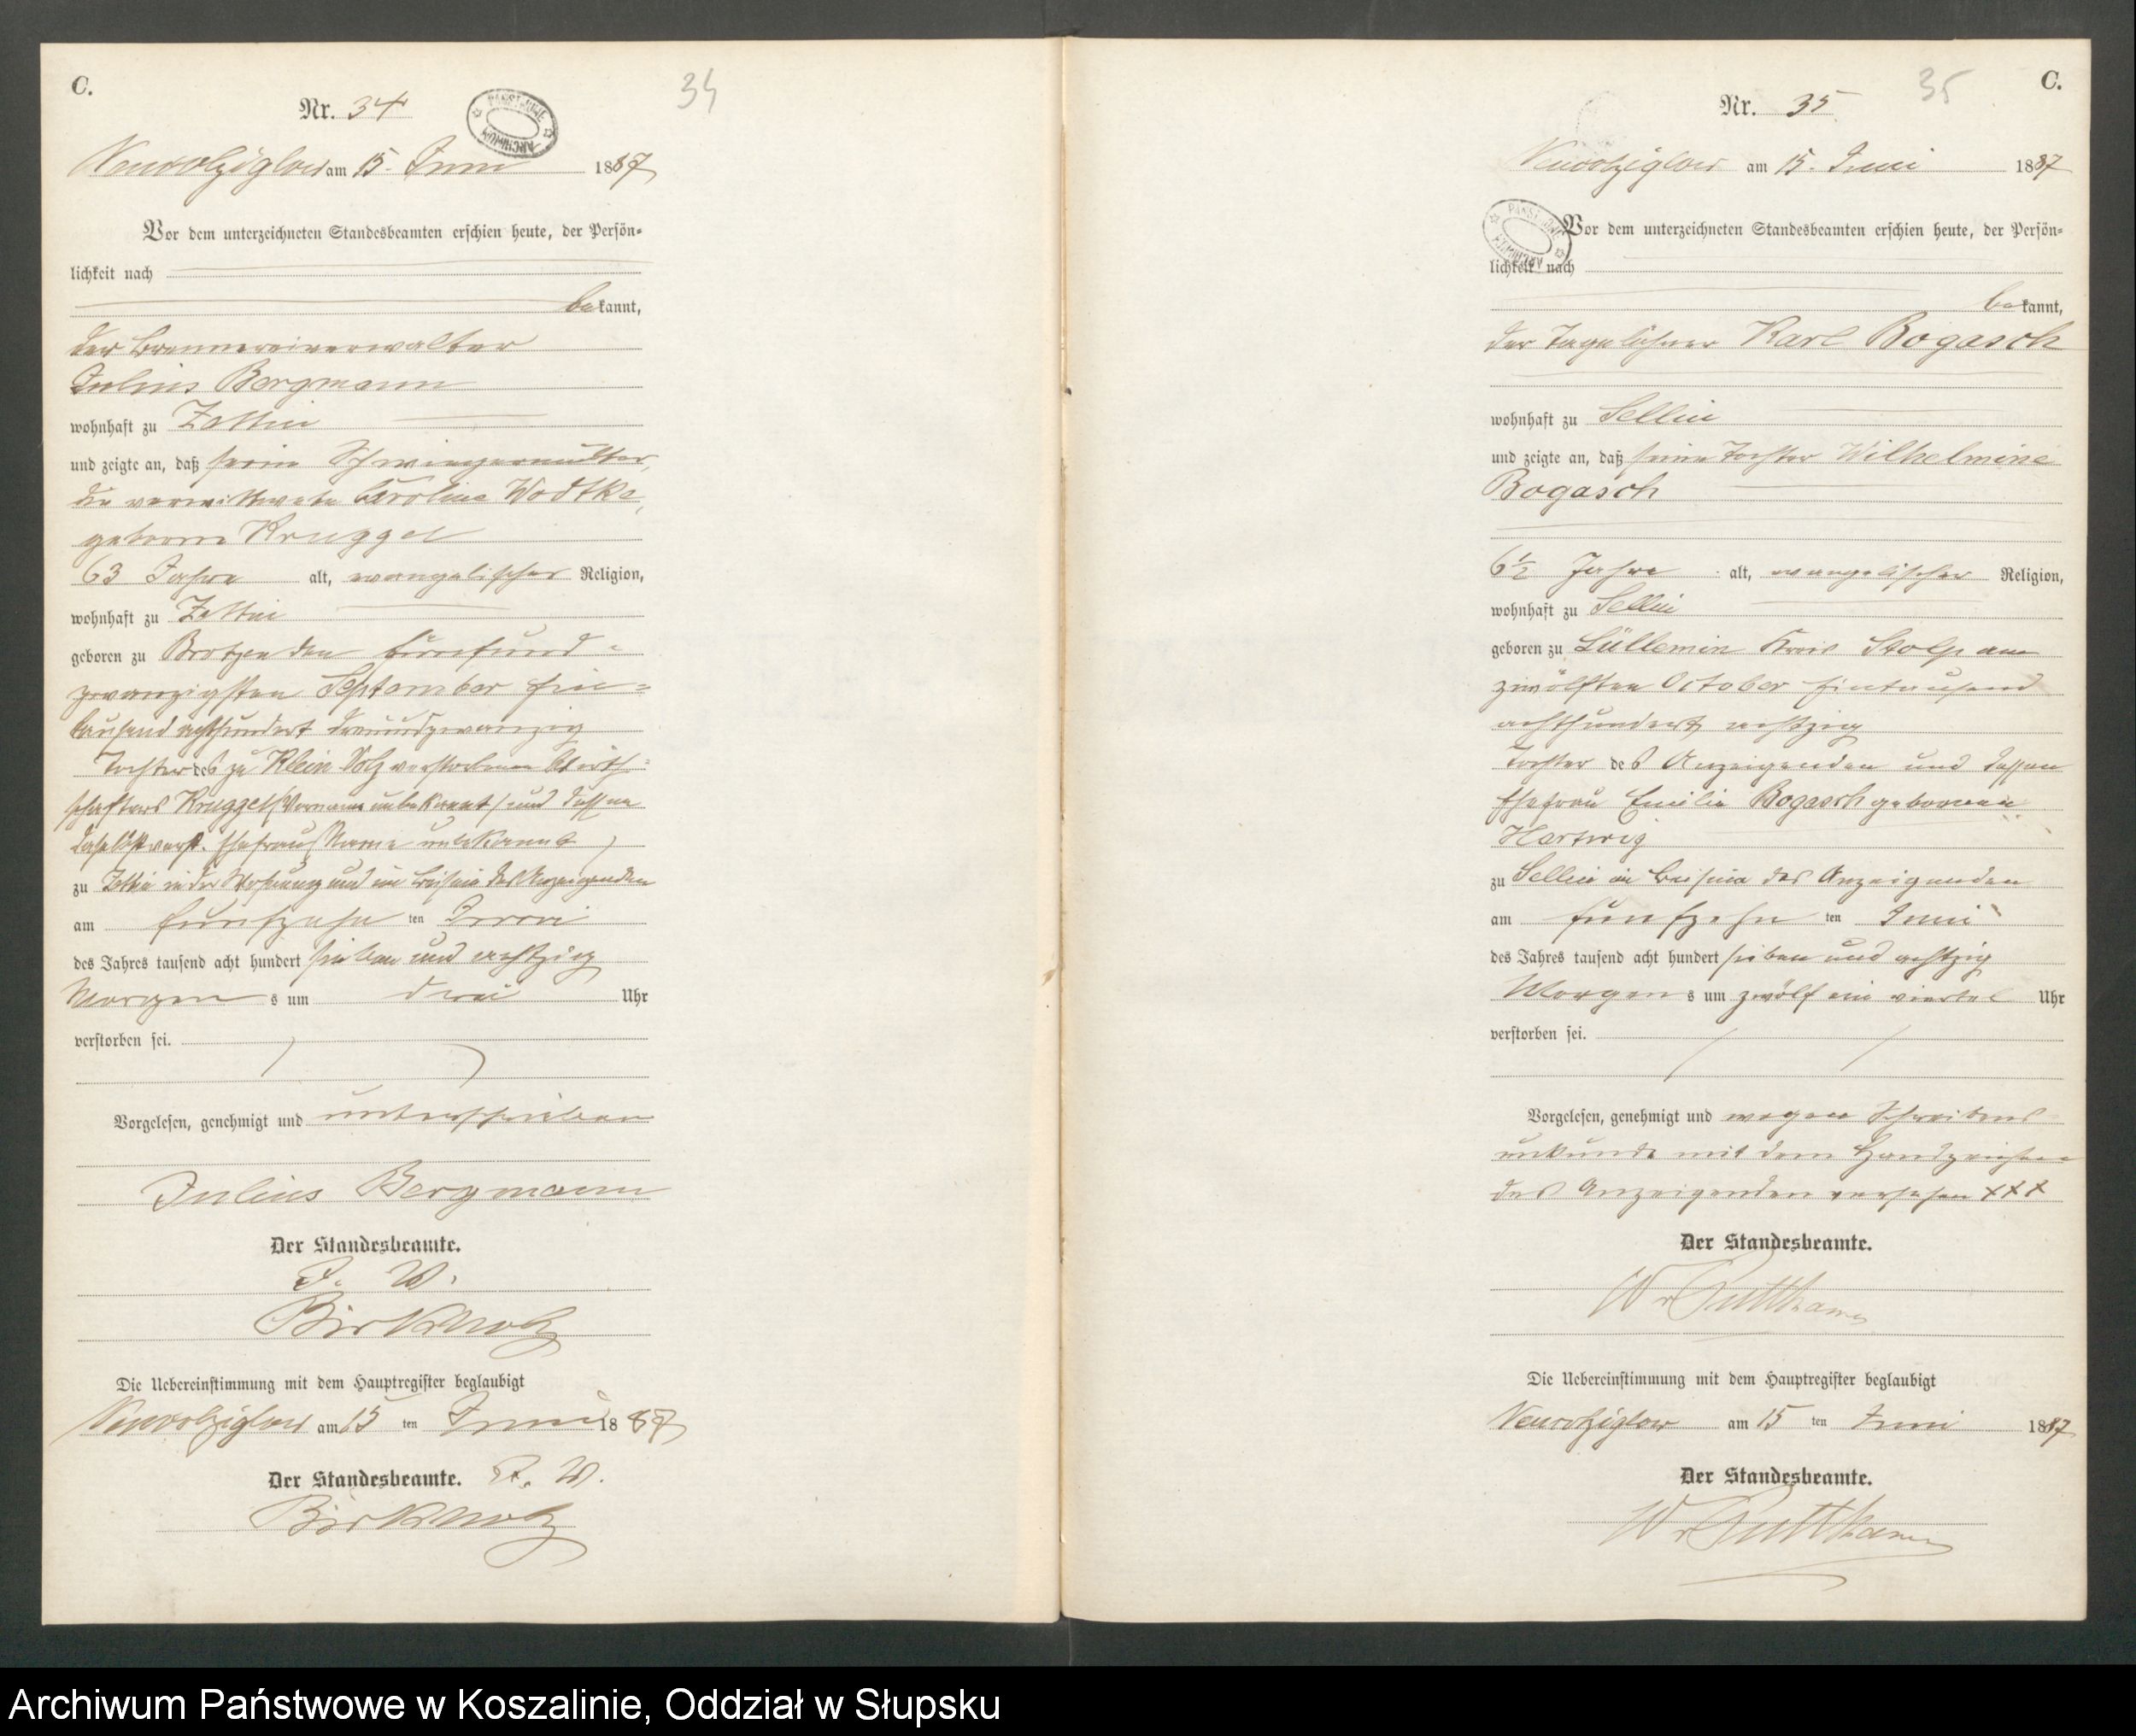 C.
Nr. 34
34
PAŃSTWOWE
ARCHIWUM
Neuwolziglow am 15. Juni 1887
Vor dem unterzeichneten Standesbeamten erschien heute, der Persön-
lichkeit nach
bekannt,
der Brennereiverwalter
Julius Bergmann
wohnhaft zu Zettin
und zeigte an, daß seine Schwiegermutter,
die verwittwete Caroline Wodtke,
geborne Kruggel
63 Jahre alt, evangelischer Religion,
wohnhaft zu Zettin
geboren zu Brotzen den fünfund-
zwanzigsten September Ein-
tausend achthundert dreiundzwanzig
Tochter des zu Klein Volz verstorbenen Wirth-
schafters Kruggel (Vorname unbekannt) und dessen
daselbst verst. Ehefrau (Name unbekannt)
zu Zettin in der Wohnung und im Beisein des Anzeigenden
am fünfzehn ten Juni
des Jahres tausend acht hundert sieben und achtzig
Morgen s um drei Uhr
verstorben sei.
Vorgelesen, genehmigt und unterschrieben
Julius Bergmann
Der Standesbeamte.
I. V.
Birkholz
Die Uebereinstimmung mit dem Hauptregister beglaubigt
Neuwolziglow am 15 ten Juni 1887
Der Standesbeamte. I. V.
Birkholz
C.
35
Nr. 35
Neuwolziglow am 15. Juni 1887
PAŃSTWOWE
ARCHIWUM
Vor dem unterzeichneten Standesbeamten erschien heute, der Persön-
lichkeit nach
bekannt,
der Tagelöhner Karl Bogasch
wohnhaft zu Sellin
und zeigte an, daß seine Tochter Wilhelmine
Bogasch
6½ Jahre alt, evangelischer Religion,
wohnhaft zu Sellin
geboren zu Lüllemin Kreis Stolp am
zwölften October Eintausend
achthundert achtzig
Tochter des Anzeigenden und dessen
Ehefrau Emilie Bogasch geborenen
Hartwig
zu Sellin im Beisein des Anzeigenden
am fünfzehn ten Juni
des Jahres tausend acht hundert sieben und achtzig
Morgen s um zwölf ein viertel Uhr
verstorben sei.
Vorgelesen, genehmigt und wegen Schreibens
unkunde mit dem Handzeichen
des Anzeigenden versehen XXX
Der Standesbeamte.
W v Puttkamer
Die Uebereinstimmung mit dem Hauptregister beglaubigt
Neuwolziglow am 15 ten Juni 1887
Der Standesbeamte.
W v Puttkamer
Archiwum Państwowe w Koszalinie, Oddział w Słupsku